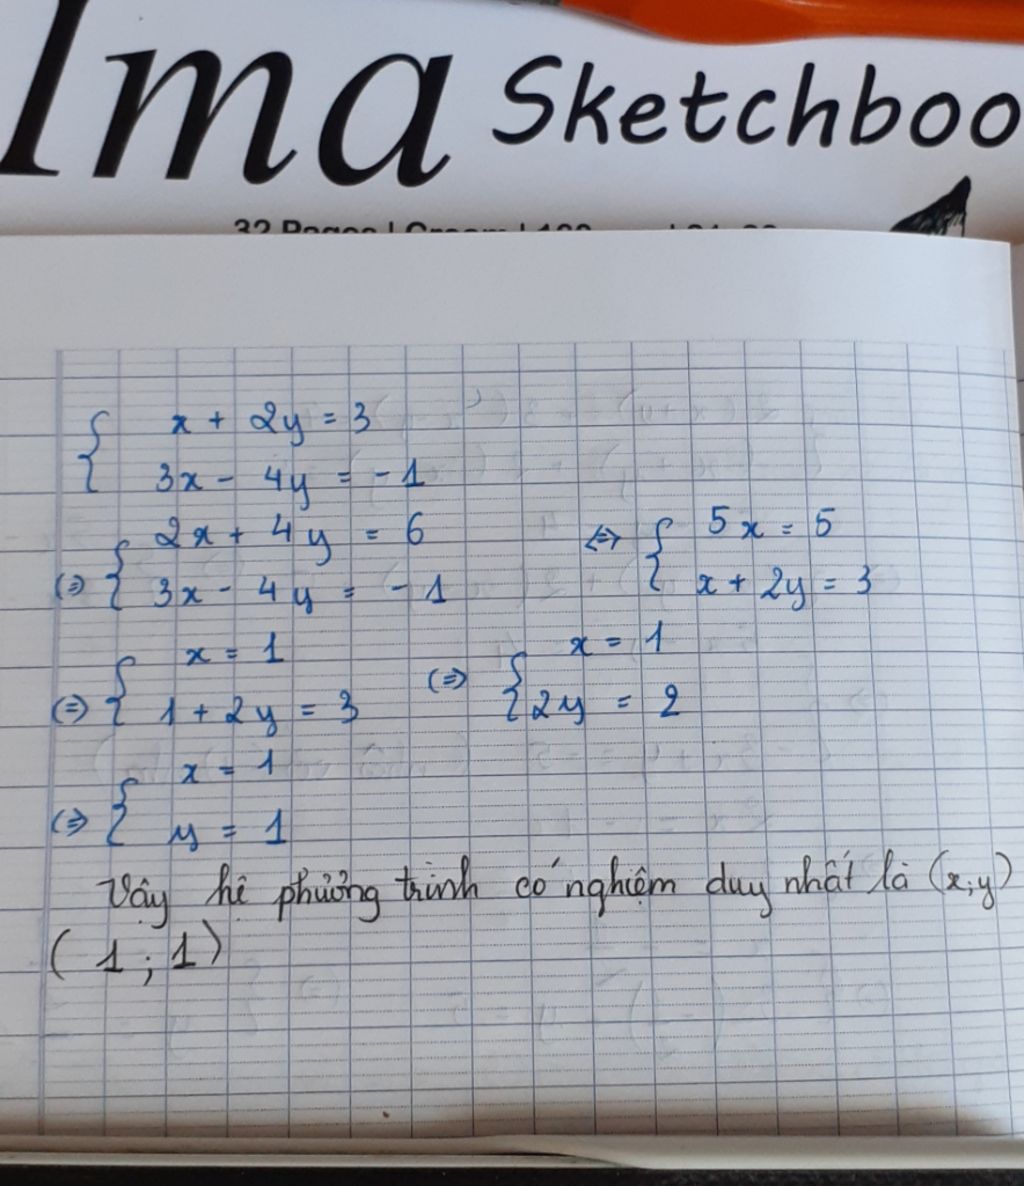 Ima Sketchboo
x + 2y = 3
3x - 4y = -1
(=) 2x + 4y = 6
3x - 4y = -1
<=> 5x = 5
x + 2y = 3
(=) x = 1
1 + 2y = 3
(=) x = 1
2y = 2
(=) x = 1
y = 1
Vậy hê phưởng trình có nghiệm duy nhất là (x;y)
(1;1)